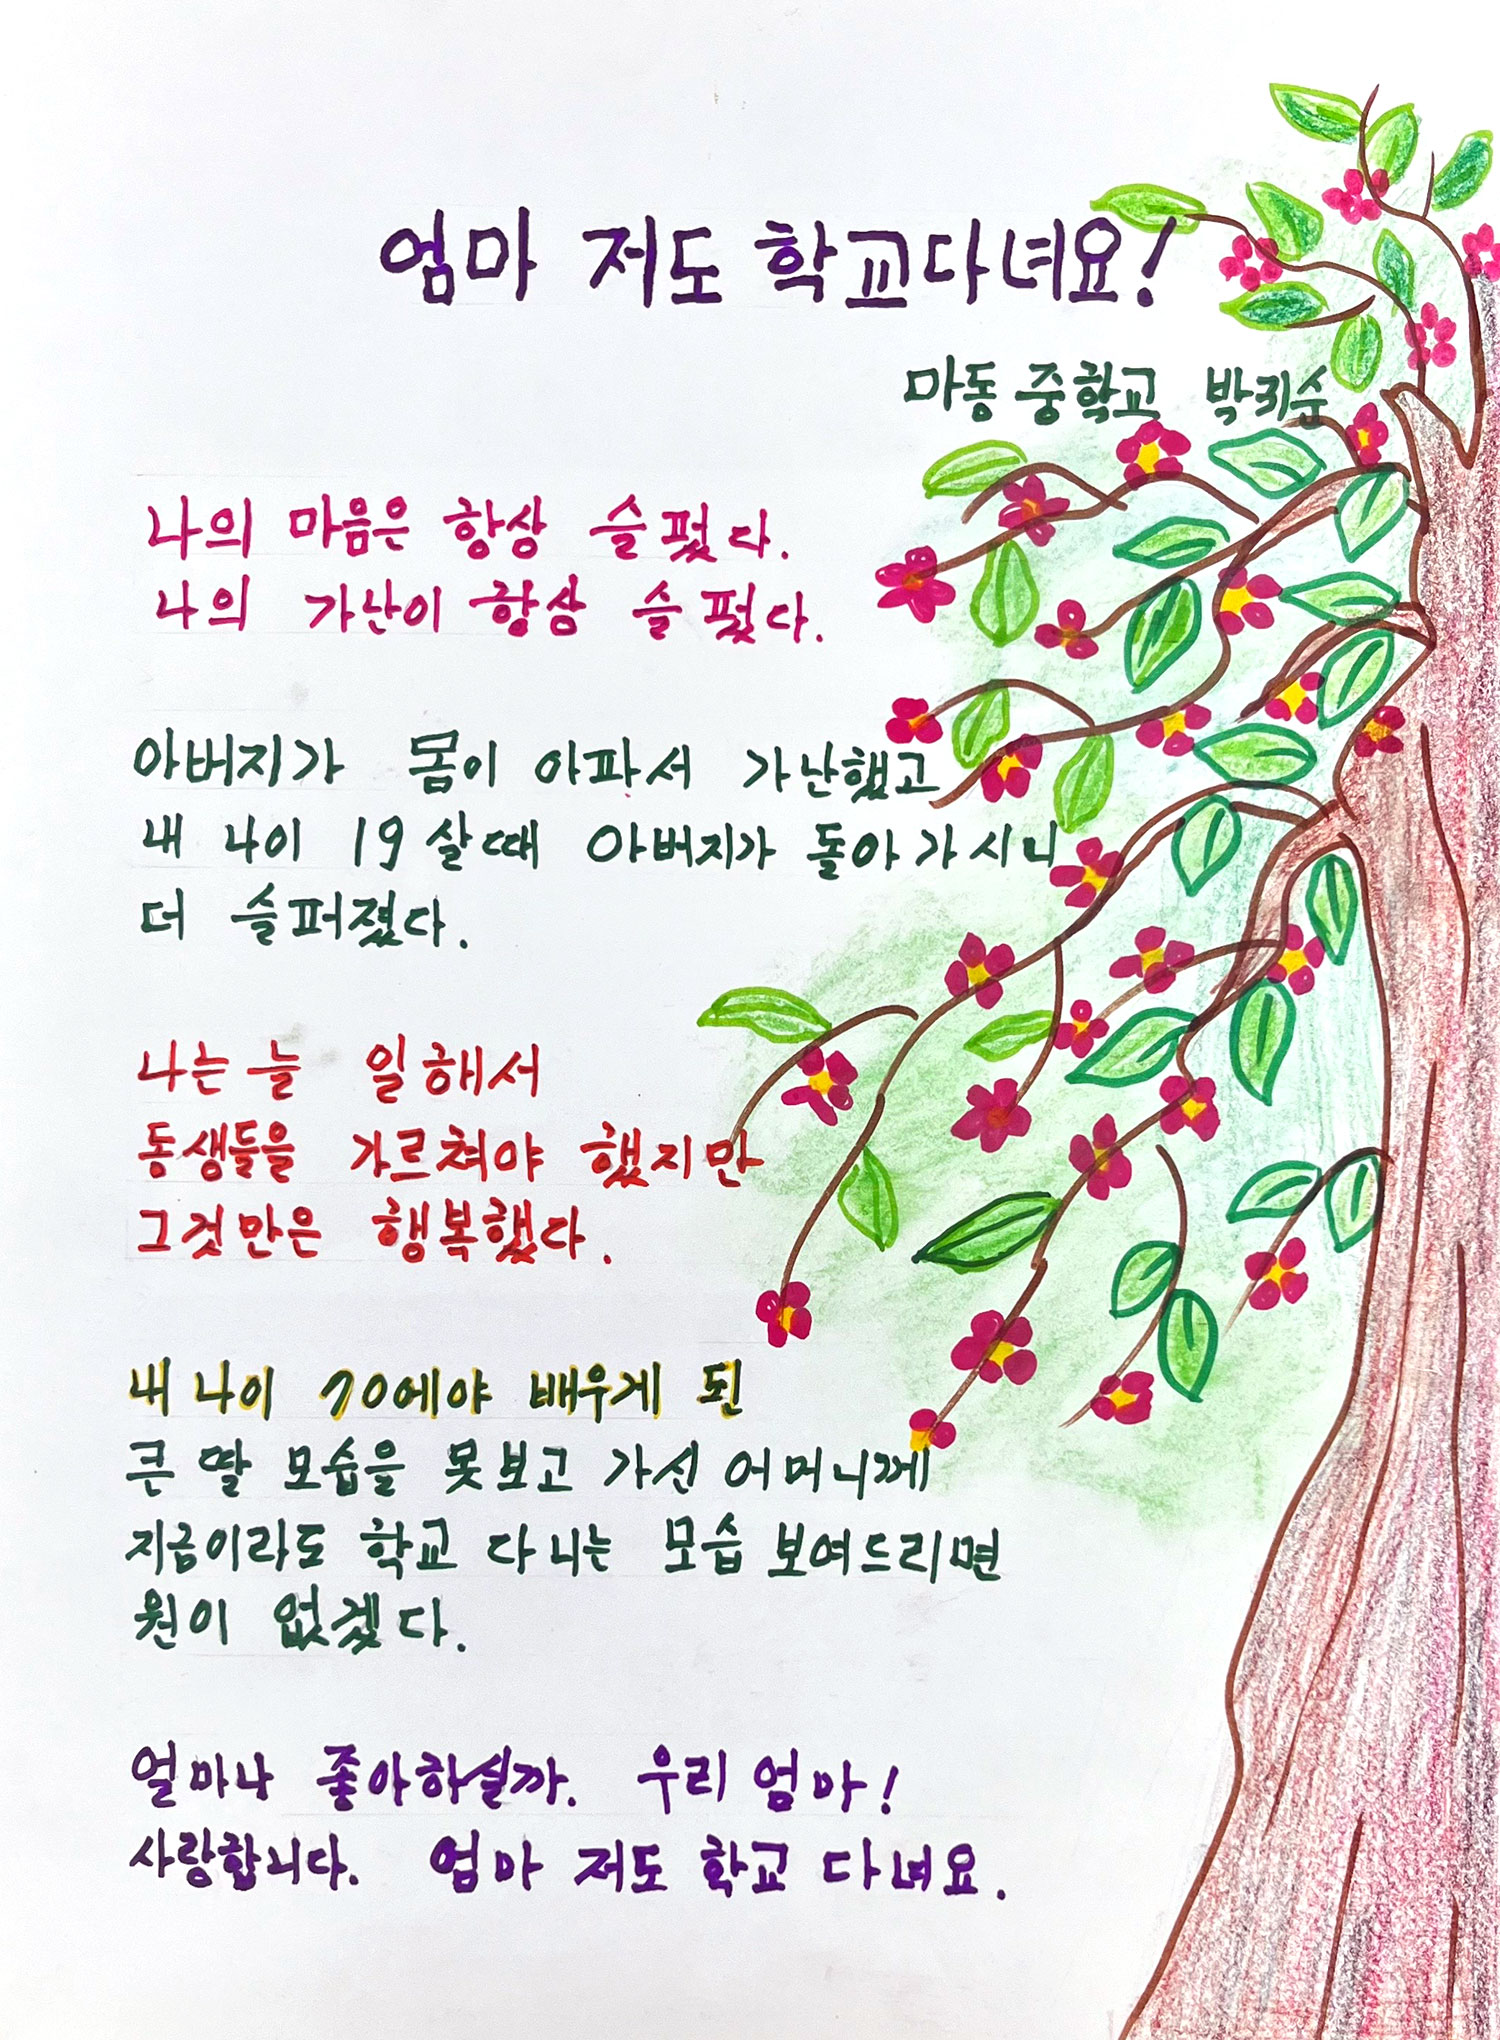 엄마 저도 학교다녀요!
마동 중학교
나의 마음은 항상 슬펐다.
나의 가난이 항상 슬펐다.
아버지가 몸이 아파서 가난했고
내 나이 19살때 아버지가 돌아가시니
더 슬퍼졌다.
나는 늘 일해서
동생들을 가르쳐야 했지만
그것만은 행복했다.
내 나이 70에야 배우게 된
큰 딸 모습을 못보고 가신 어머니께
지금이라도 학교 다니는 모습 보여드리면
원이 없겠다.
얼마나 좋아하실까. 우리 엄마!
사랑합니다. 엄마 저도 학교 다녀요.